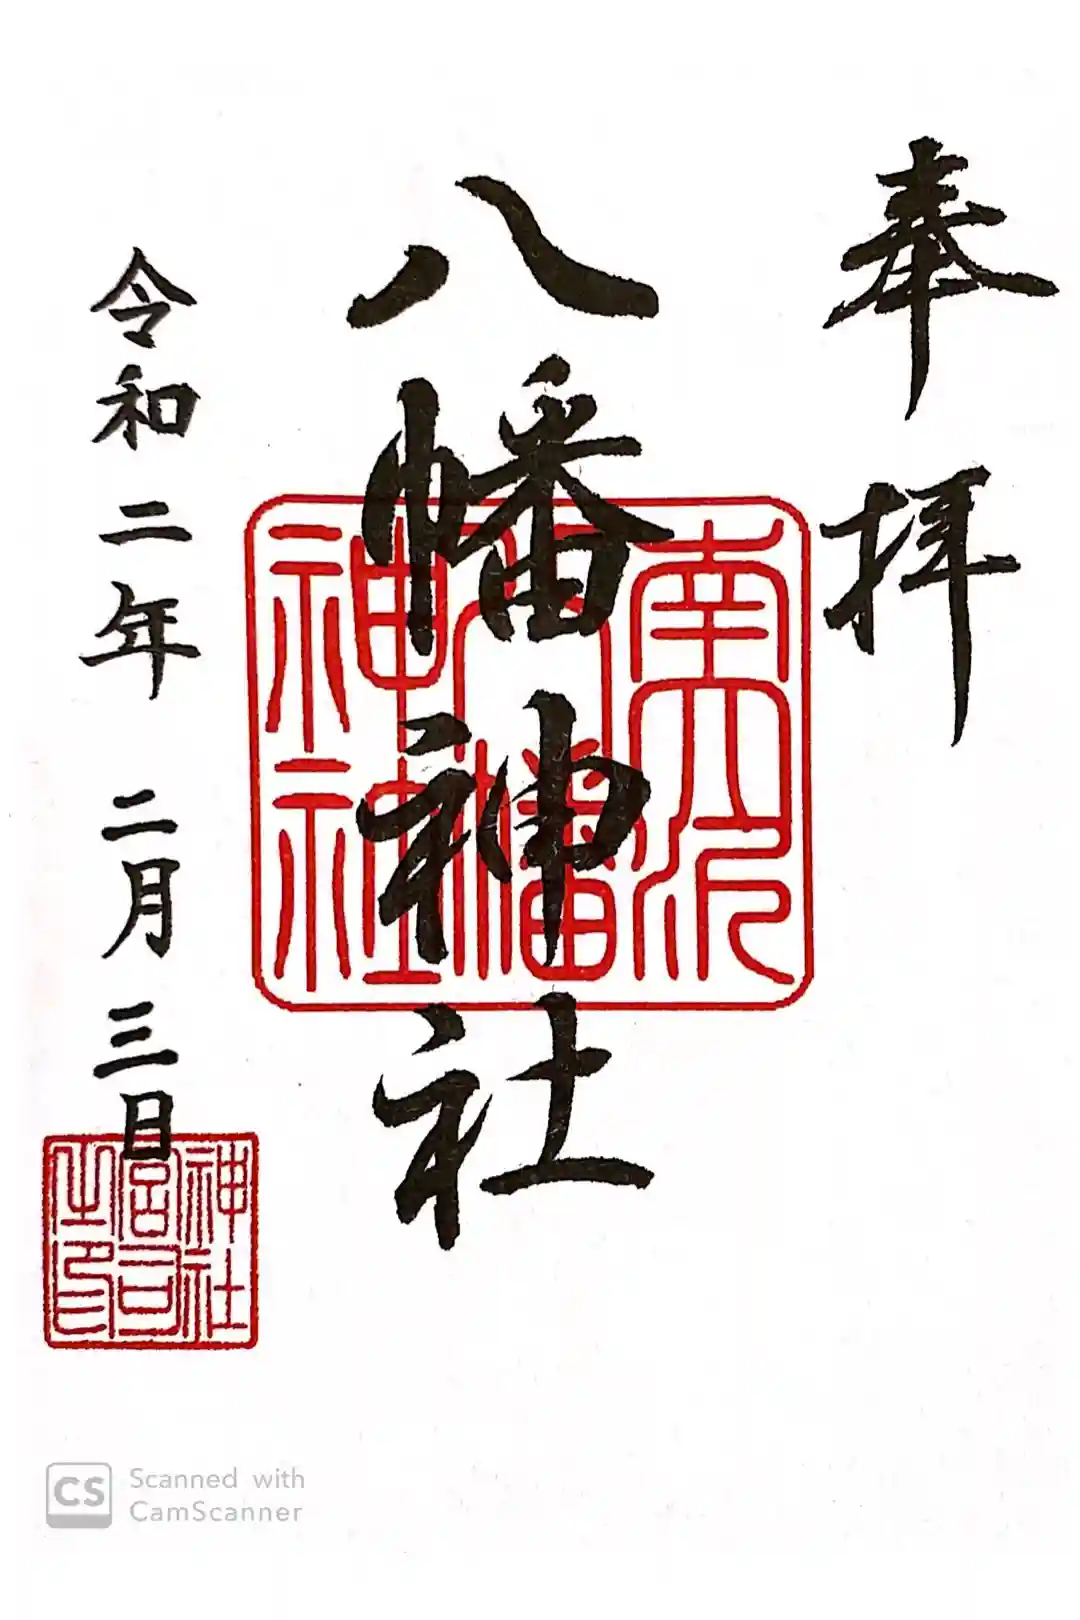 奉拝
八幡神社
令和二年 二月 三日
南沢
八幡
神社
神社
宮司
之印
CS Scanned with
CamScanner